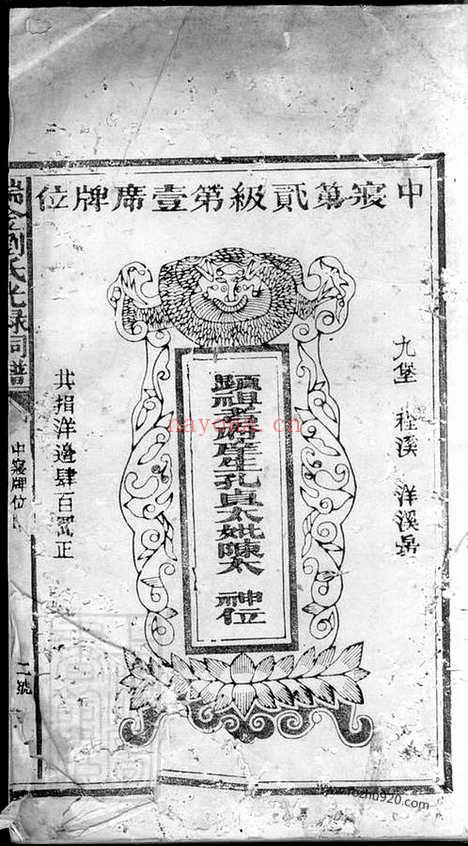 中寢第貳級第壹席牌位
九堡 程溪 洋溪
顯祖考 庠生孔貞太妣陳太 神位
共捐洋邊肆百 正
瑞金劉氏光祿祠譜
中寢牌位
二號
nayona.cn
www.fozhu920.com